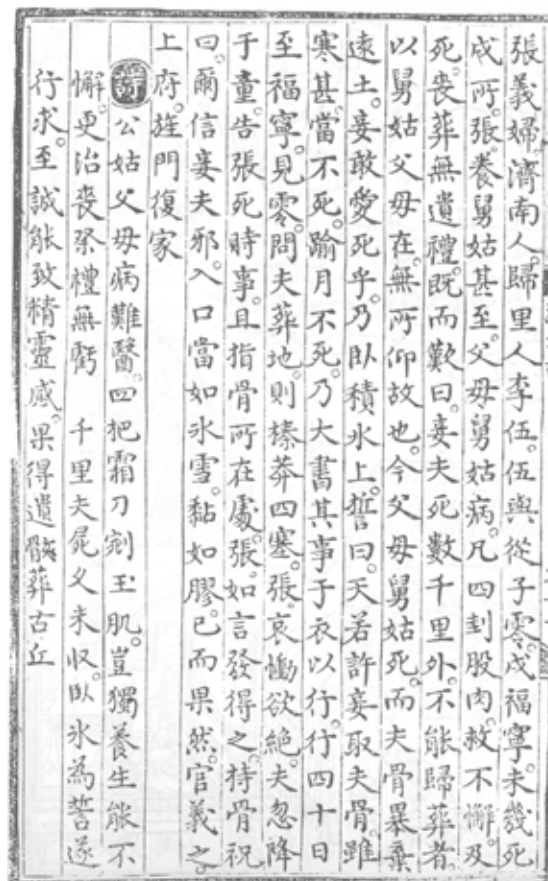 張義婦。濟南人。歸里人李伍。伍與從子零。戍福寧。未幾死
戍所。張養舅姑甚至。父母舅姑病。凡四刲股肉。救不懈。及
死。喪葬無遺禮。既而歎曰。妾夫死數千里外。不能歸葬者。
以舅姑父母在。無所仰故也。今父母舅姑死。而夫骨暴棄
遠土。妾敢愛死乎。乃臥積氷上。誓曰。天若許妾取夫骨。雖
寒甚。當不死。踰月不死。乃大書其事于衣以行。行四十日
至福寧。見零。問夫葬地。則榛莽四塞。張哀慟欲絶。夫忽降
于童。告張死時事。且指骨所在處。張如言發得之。持骨祝
曰。爾信妾夫邪。入口當如氷雪。黏如膠。已而果然。官義之。
上府。旌門復家
詩 公姑父母病難醫。四把霜刀剜玉肌。豈獨養生能不
懈。更治喪祭禮無虧 千里夫屍久未収。臥氷為誓遂
行求。至誠能致精靈感。果得遺骸葬古丘